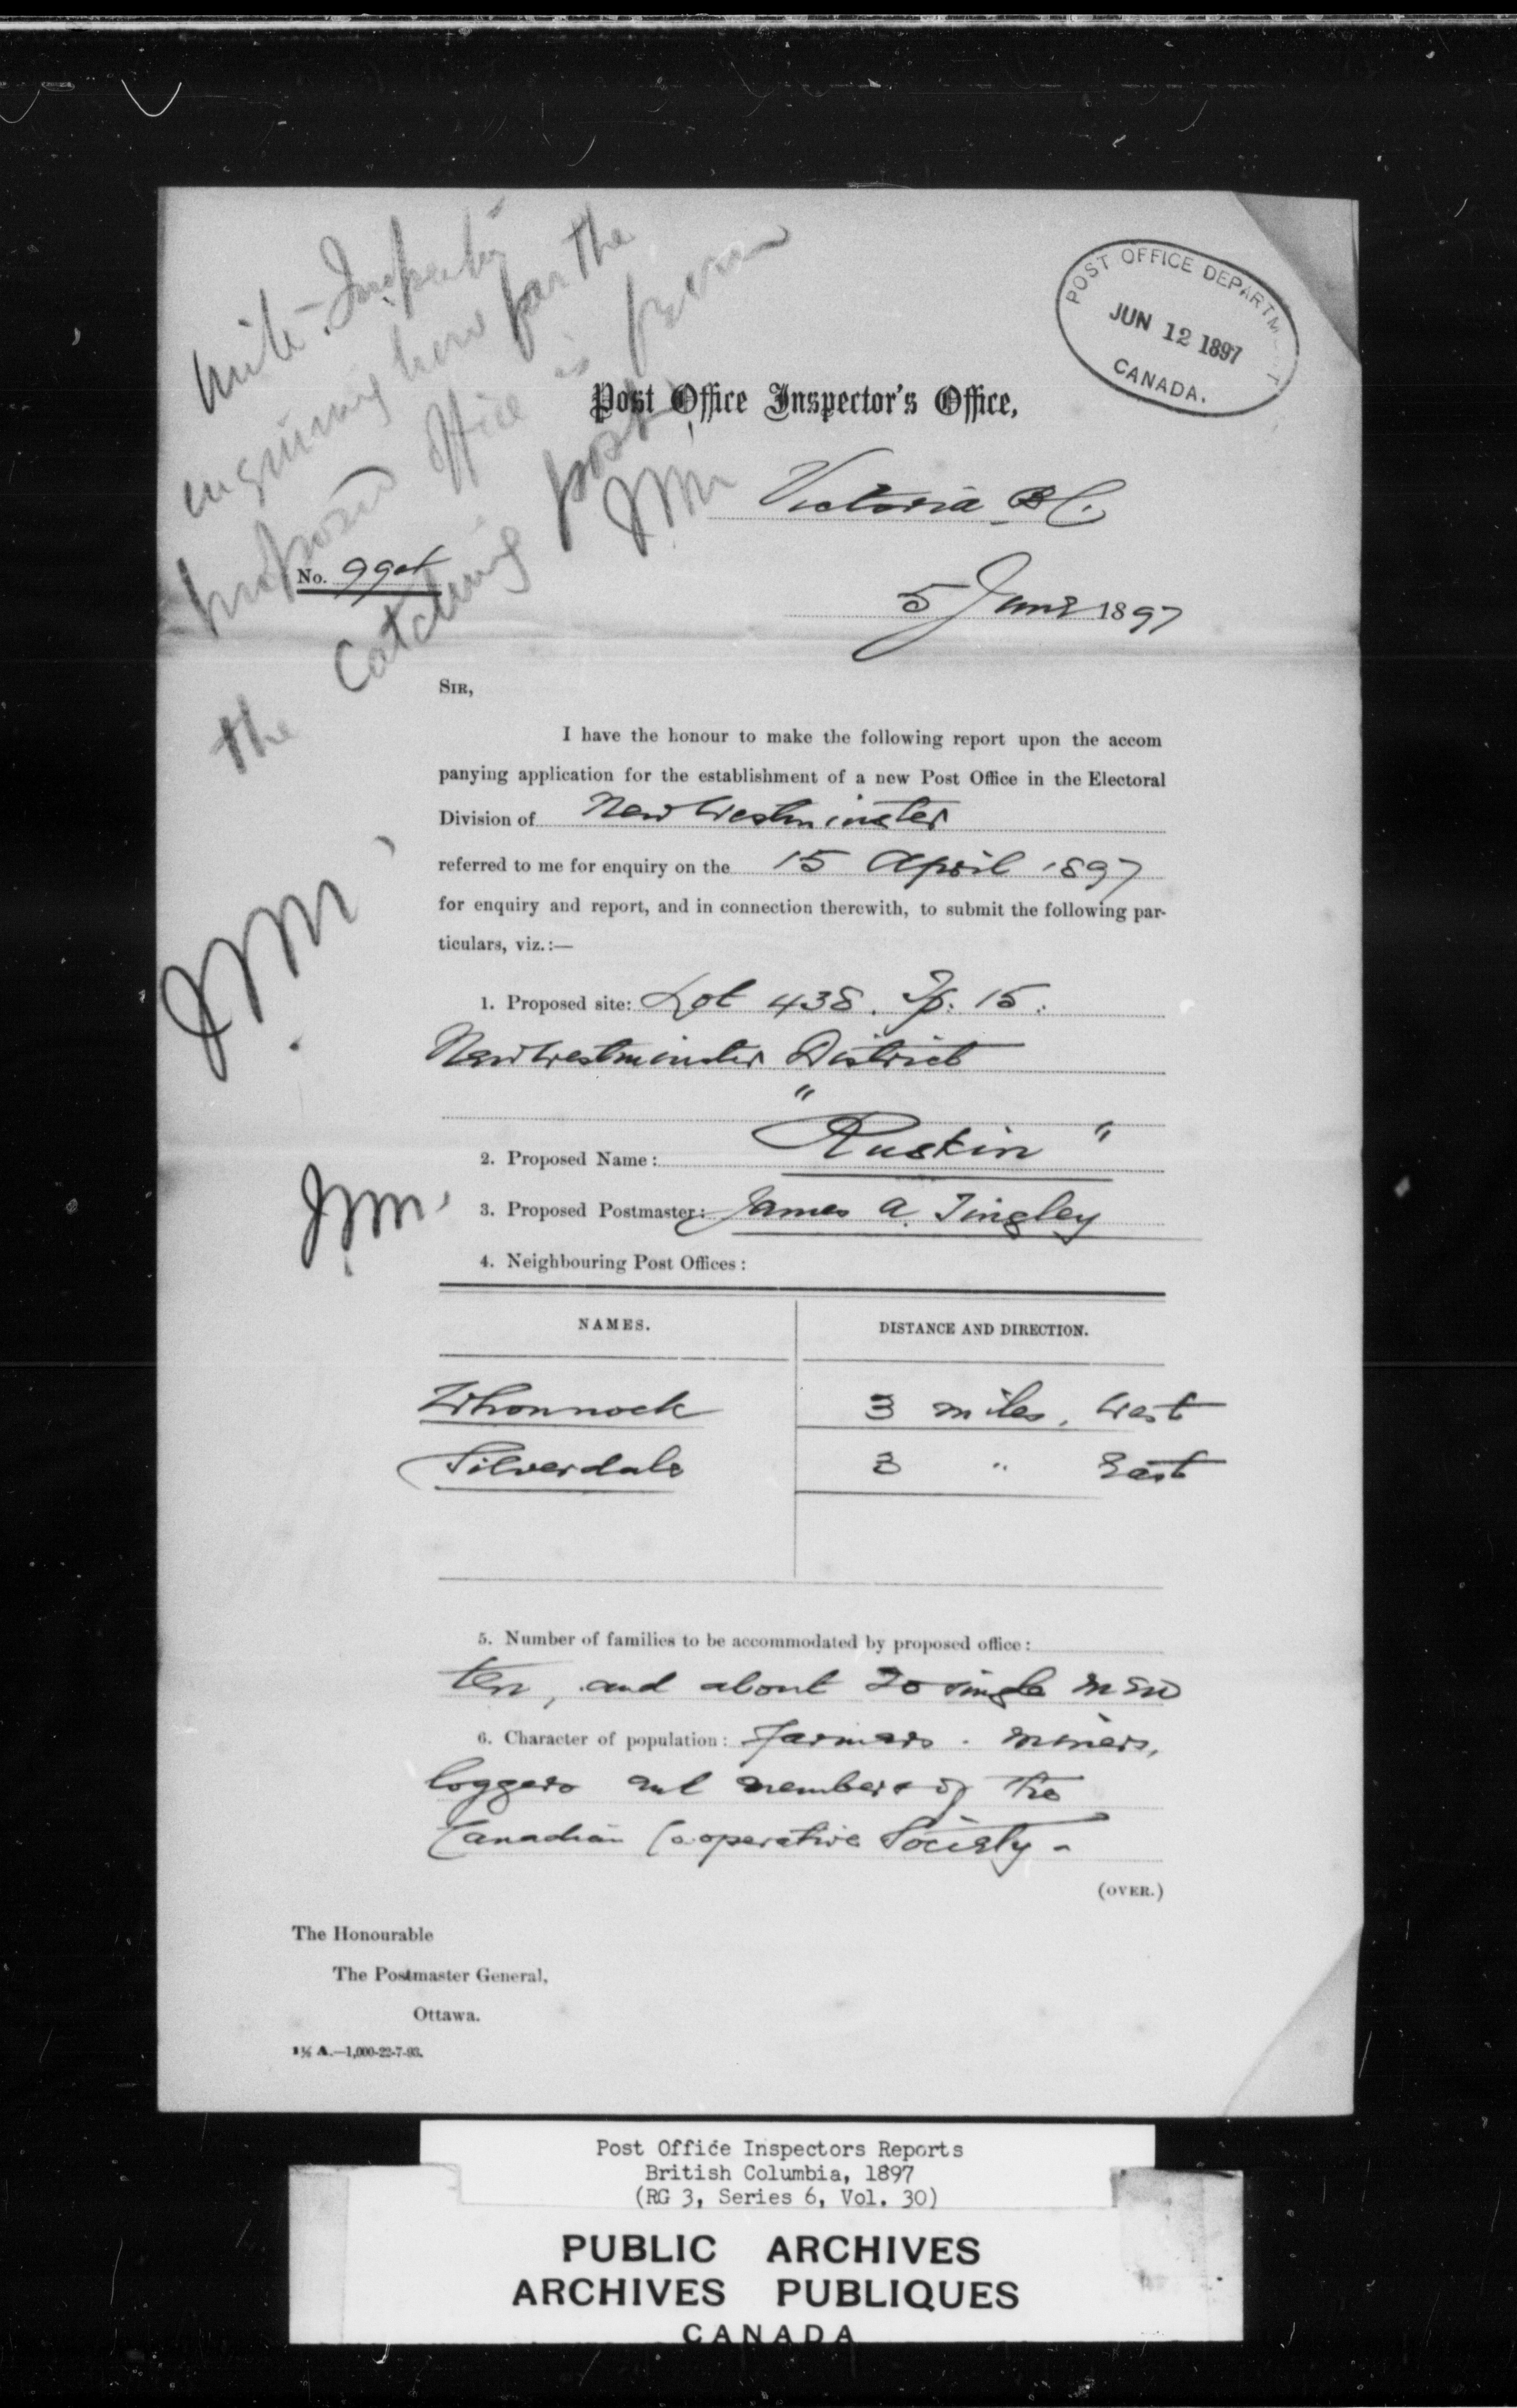 Write Inspector
enquiring how far the
proposed office is from
the catching post
JMM
POST OFFICE DEPARTM T
JUN 12 1897
CANADA.
Post Office Inspector's Office,
Victoria BC.
No.
5 June 1897
SIR,
I have the honour to make the following report upon the accom
panying application for the establishment of a new Post Office in the Electoral
Division of New Westminster
referred to me for enquiry on the 15 April 1897
for enquiry and report, and in connection therewith, to submit the following par-
ticulars, viz.:—
1. Proposed site: Lot 438. Tp. 15.
New Westminster District
2. Proposed Name: "Ruskin"
3. Proposed Postmaster: James A. Tingley
4. Neighbouring Post Offices:
NAMES. DISTANCE AND DIRECTION.
Whonnock 3 miles. West
Silverdale 3 " East
5. Number of families to be accommodated by proposed office:
ten, and about 20 single men
6. Character of population: Farmers. miners,
loggers and members of the
Canadian Cooperative Society-
(OVER.)
The Honourable
The Postmaster General,
Ottawa.
A.—1,000-22-7-93.
Post Office Inspectors Reports
British Columbia, 1897
(RG 3, Series 6, Vol. 30)
PUBLIC ARCHIVES
ARCHIVES PUBLIQUES
CANADA